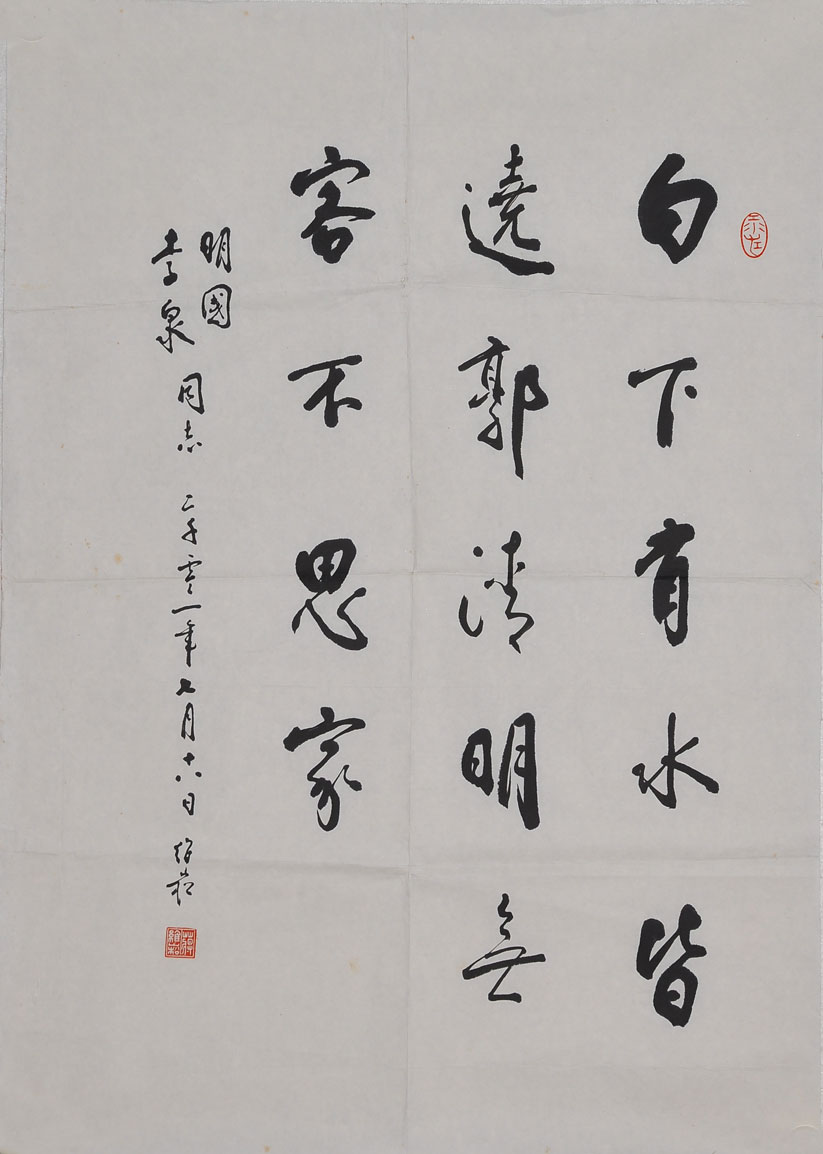 白下有水皆
遶郭清明無
客不思家
明國
李泉
同志 二千零一年七月十六日 維崧